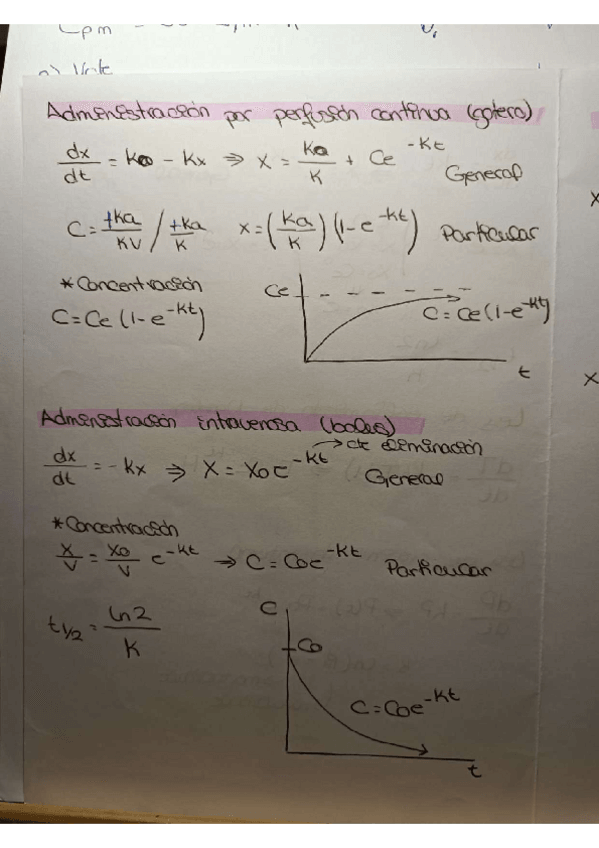 Cpm
Vi
a)
Administración por perfusión continua (gotero)
dx/dt = ka - kx ⇒ x = ka/K + Ce^-kt General
C = +ka/KV / +ka/K x = (ka/K)(1-e^-kt) Particular
* Concentración
C = Ce (1-e^-kt)
Ce
C = Ce (1-e^-kt)
t
x
x
Administración intravenosa (bolus)
→ cte eliminación
dx/dt = -kx ⇒ x = x0e^-kt General
* Concentración
x/V = x0/V e^-kt → C = C0e^-kt Particular
t1/2 = ln2/K
C
C0
C = C0e^-kt
t